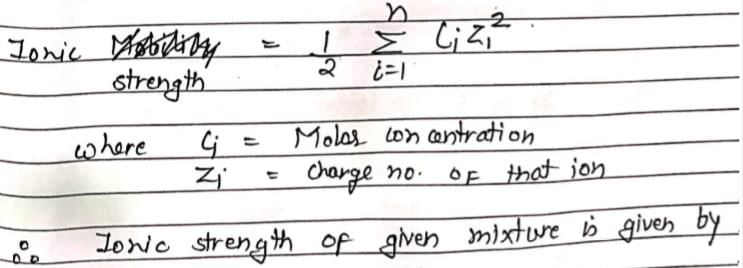 Ionic Mobility = 1/2 n∑i=1 CiZi²
strength
where Ci = Molar concentration
Zi = charge no. OF that ion
∴ Ionic strength of given mixture is given by